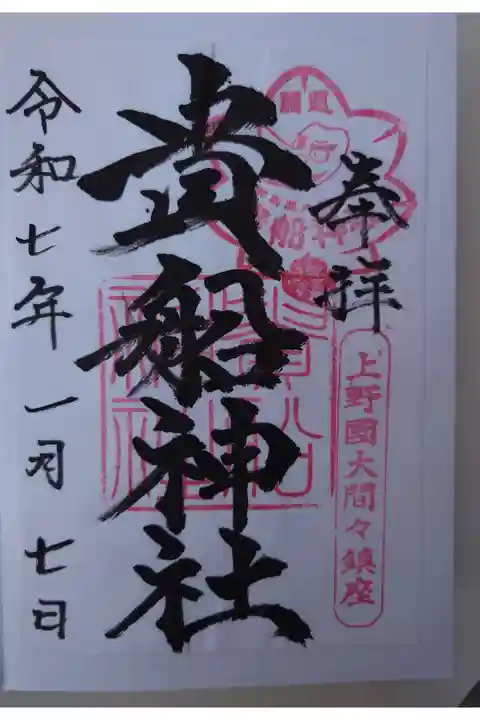 奉拝
上野國大間々鎮座
貴船神社
貴船神社
令和七年一月七日